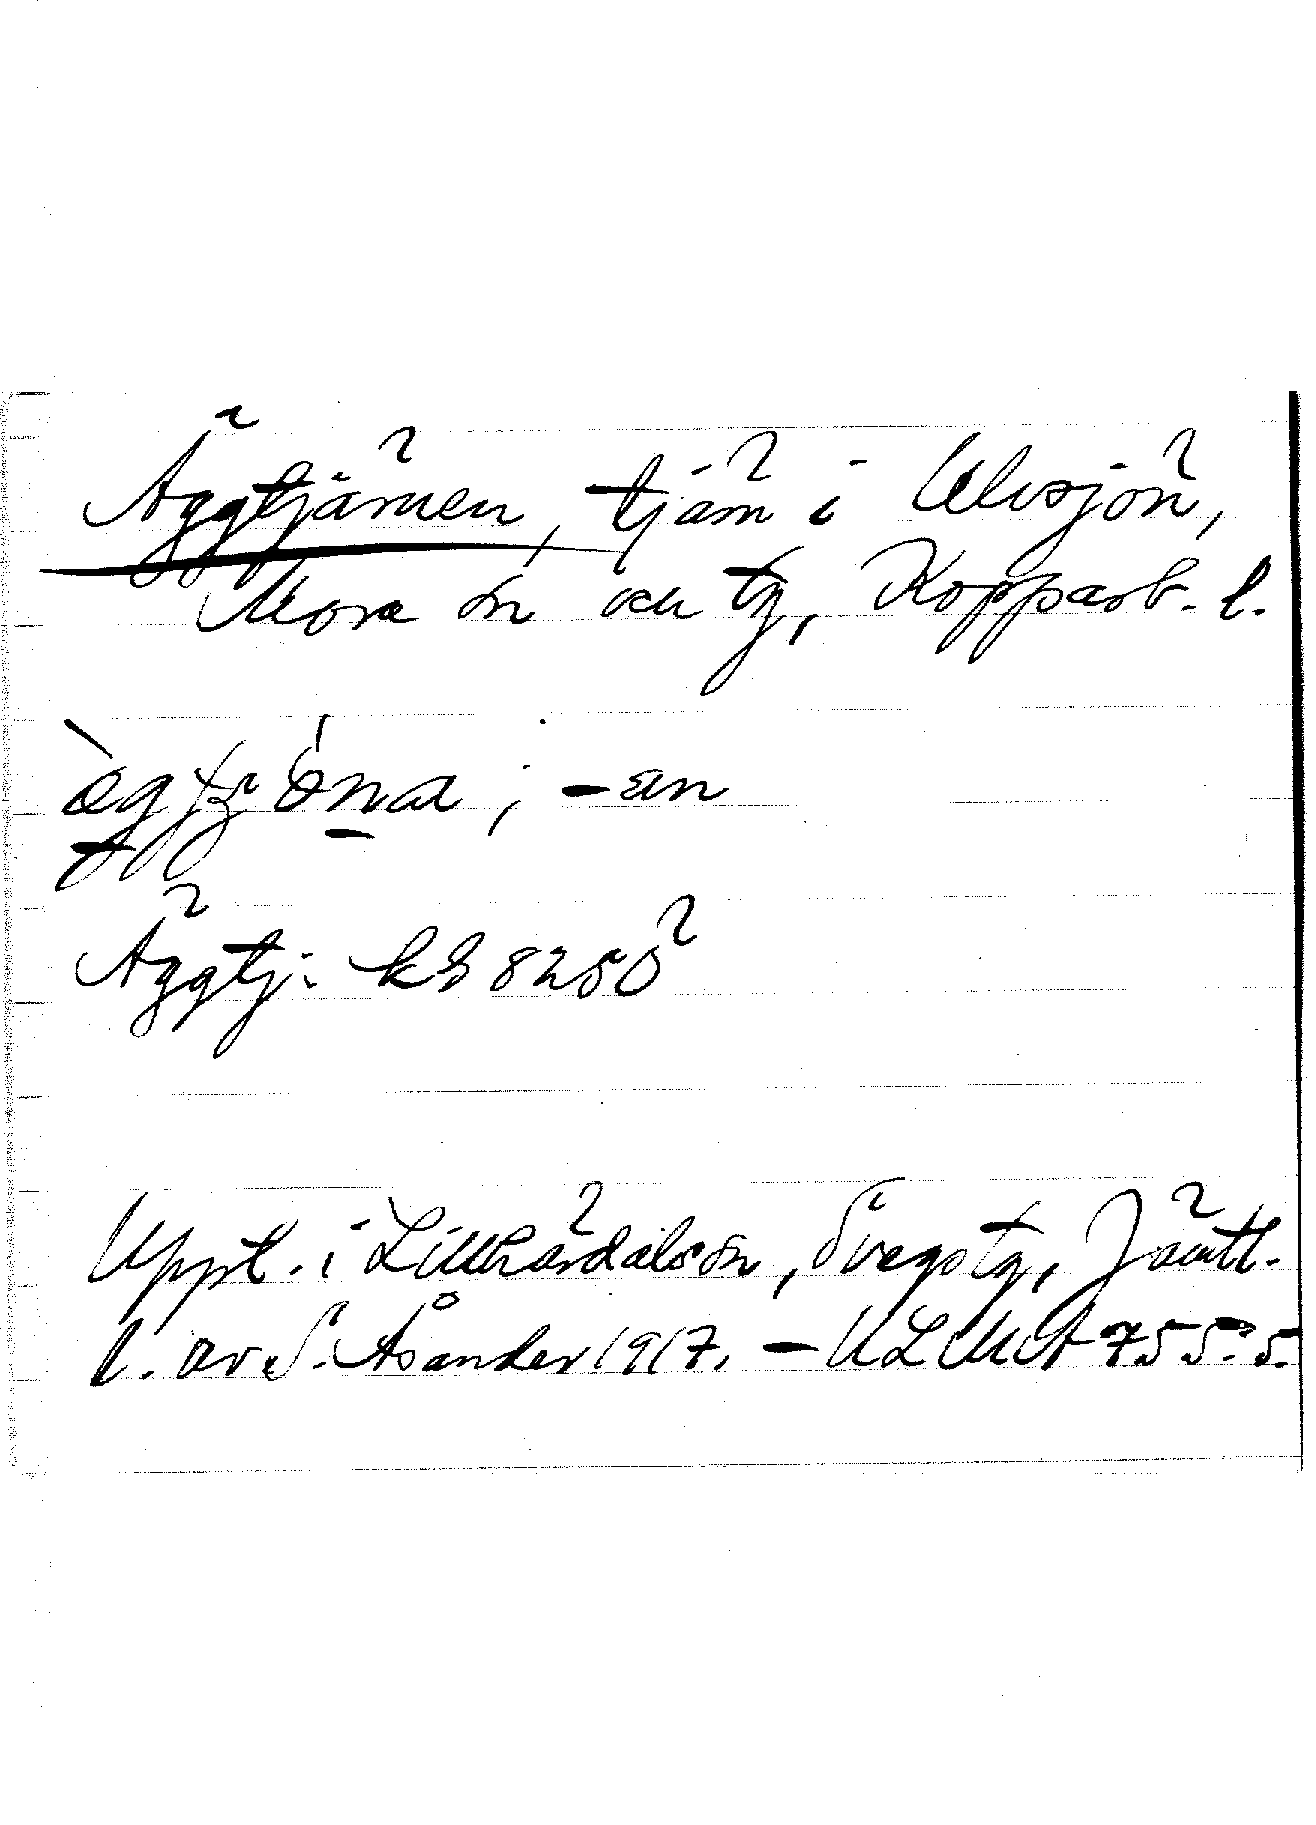 Äggtjärnen, tjärn i Ulvsjön,
Mora sn och tg, Kopparb. l.
; -an
Äggtj: kB 8280
Uppt. i Lillhärdals sn, Svegs tg, Jämtl.
l. av S. Åsander 1917. - ULMA 755:5.